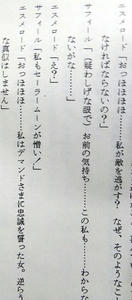 エスメロード「おっほほほ……私が敵を逃がす？　なぜ、そのようなこ
なければならないの？」
サフィール「（疑わしげな眼で）お前の気持ち……この私も……わからな
ないがな……」
エスメロード「え？」
サフィール「私もセーラームーンが憎い！」
エスメロード「おっほほほ……私はデマンドさまに忠誠を誓った女。逆らう
な真似はしません」